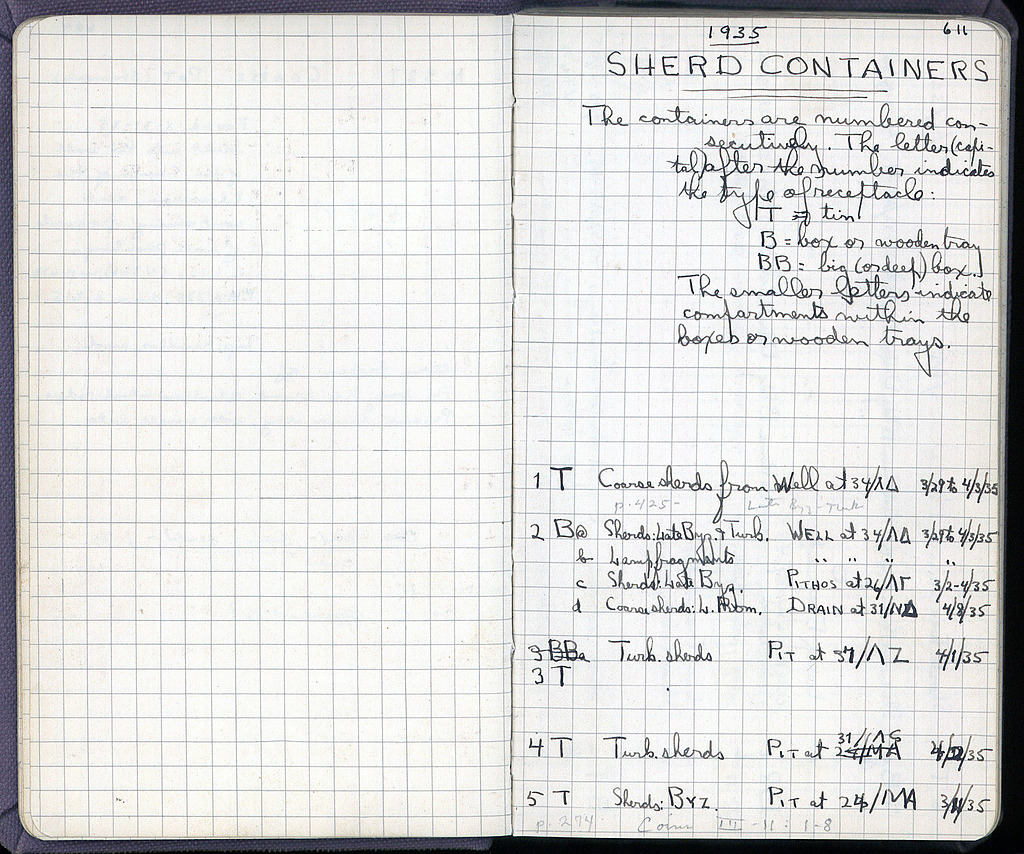 1935
611
SHERD CONTAINERS
The containers are numbered con-
secutively. The letter (capi-
tal) after the number indicates
the type of receptacle:
T = tin
B = box or wooden tray
BB = big (or deep) box.
The smaller letters indicate
compartments within the
boxes or wooden trays.
1 T Coarse sherds from Well at 34/ΛΔ 3/29 to 4/3/35
p. 425- Late Byz-Turk
2 B a Sherds: Late Byz. & Turk. WELL at 34/ΛΔ 3/29 to 4/3/35
b Lamp fragments " " " "
c Sherds: Late Byz. PITHOS at 26/ΛΓ 3/2-4/35
d Coarse sherds: L. Rom. DRAIN at 31/ΛΔ 4/8/35
3 BBa Turk. sherds PIT at 37/ΛZ 4/1/35
3 T
31/ΛS
4 T Turk. sherds PIT at /MA /35
5 T Sherds: BYZ. PIT at /MA 3/ /35
p. 274 Coins III -11: 1-8